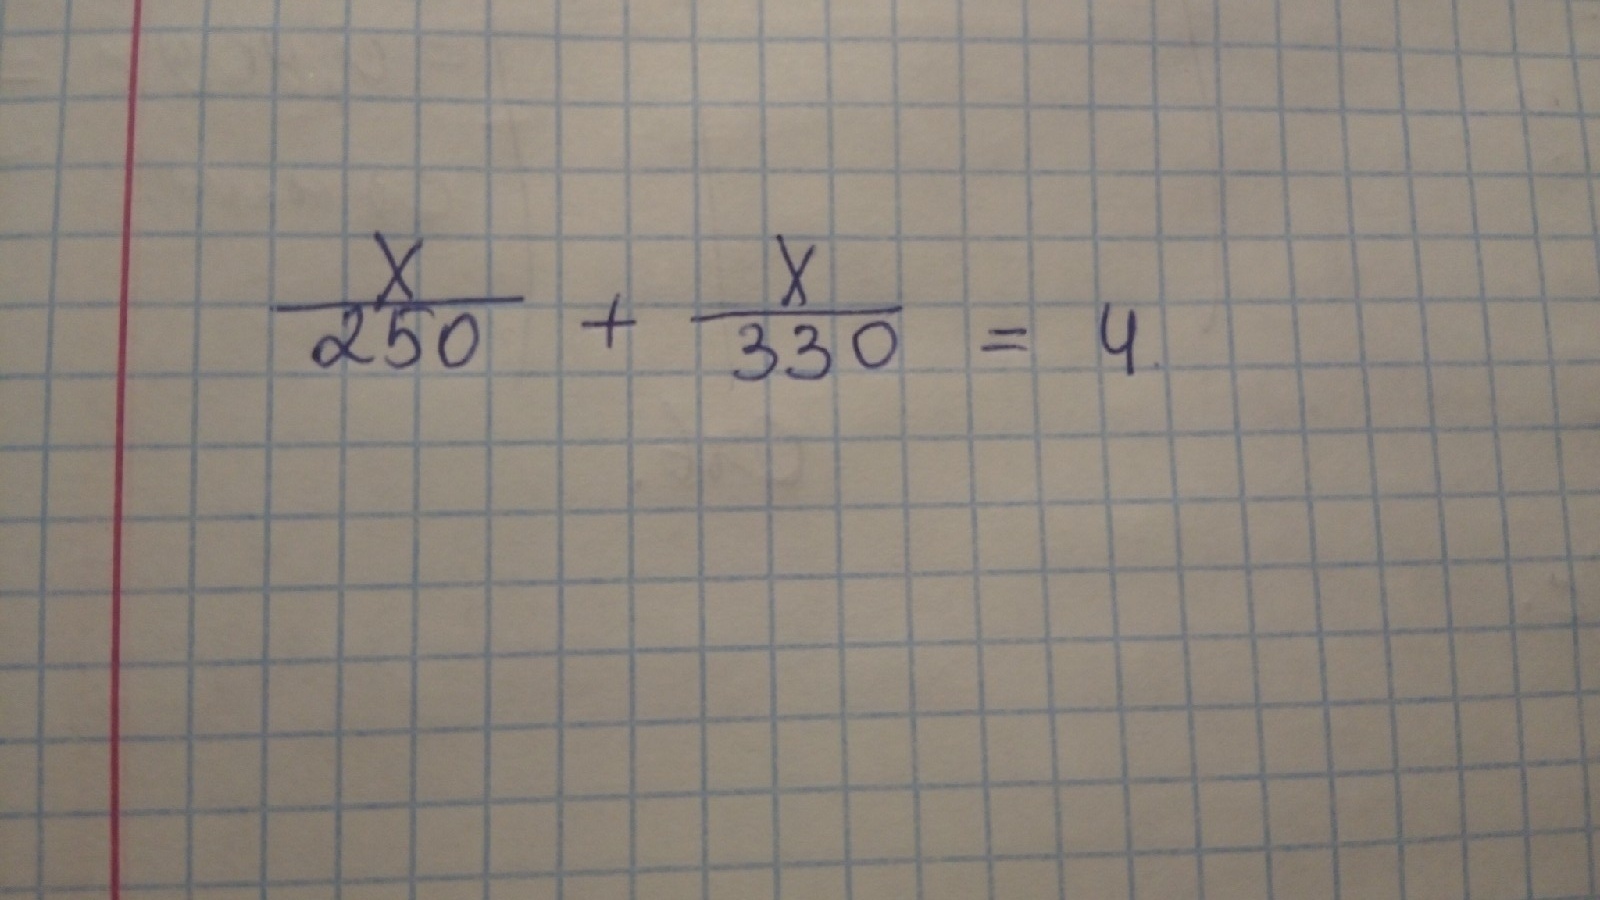 x/250 + x/330 = 4